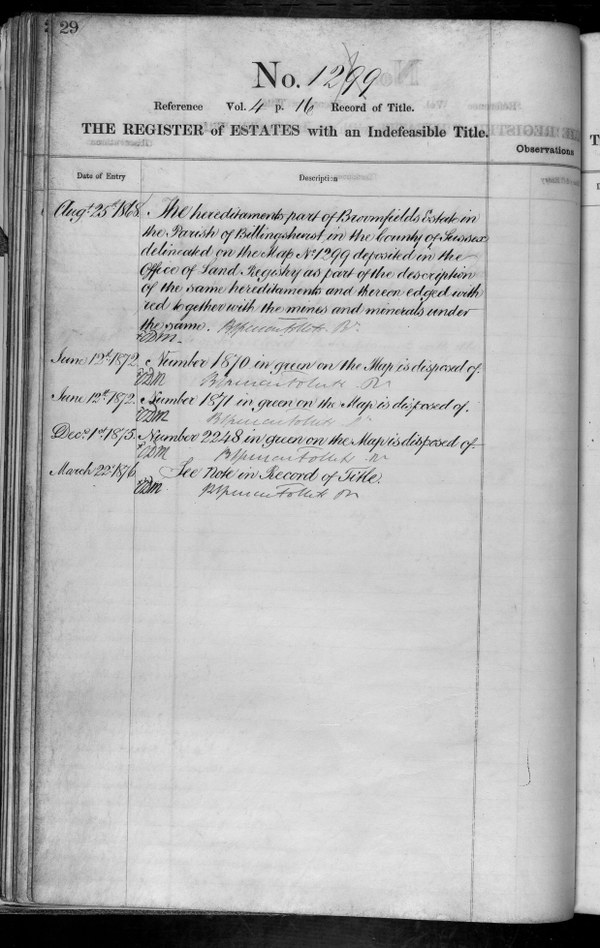 29
No. 1299
Reference Vol. 4 p. 16 Record of Title.
THE REGISTER of ESTATES with an Indefeasible Title.
Observations
Date of Entry Description
Augt. 25th 1868. The hereditaments part of Broomfields Estate in
the Parish of Billingshurst in the County of Sussex
delineated on the Map No. 1299 deposited in the
Office of Land Registry as part of the description
of the same hereditaments and thereon edged with
red together with the mines and minerals under
the same.
June 12th 1872. Number 1870 in green on the Map is disposed of.
June 12th 1872. Number 1871 in green on the Map is disposed of.
Decr. 1st 1875. Number 2248 in green on the Map is disposed of.
March 22d 1876. See note in Record of Title.